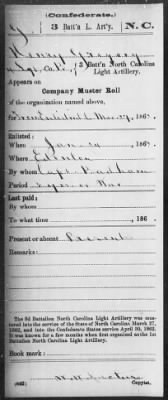 (Confederate.)
G 3 Batt'n L. Art'y. N.C.
Henry Gregory
3 Batt'n North Carolina
Light Artillery.
Appears on
Company Muster Roll
of the organization named above,
for
Enlisted:
When
Where Edenton
By whom Capt. Badham
Period
Last paid:
By whom
To what time , 186 .
Present or absent Present
Remarks:
The 3d Battalion North Carolina Light Artillery was mus-
tered into the service of the State of North Carolina March 27,
1862, and into the Confederate States service April 30, 1862.
It was known for a few months when first organized as the 1st
Battalion North Carolina Light Artillery.
Book mark:
Copyist.